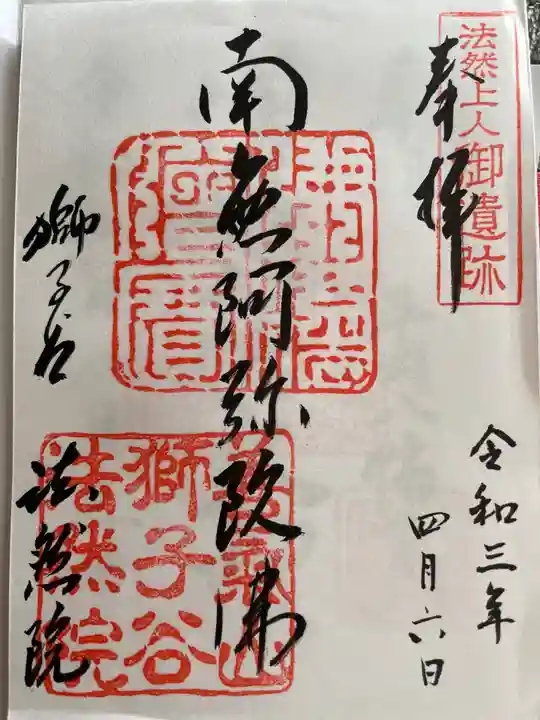 法然上人御遺跡
奉拝
令和三年
四月六日
南無阿弥陀佛
獅子谷
法然院
善氣山
獅子谷
法然院